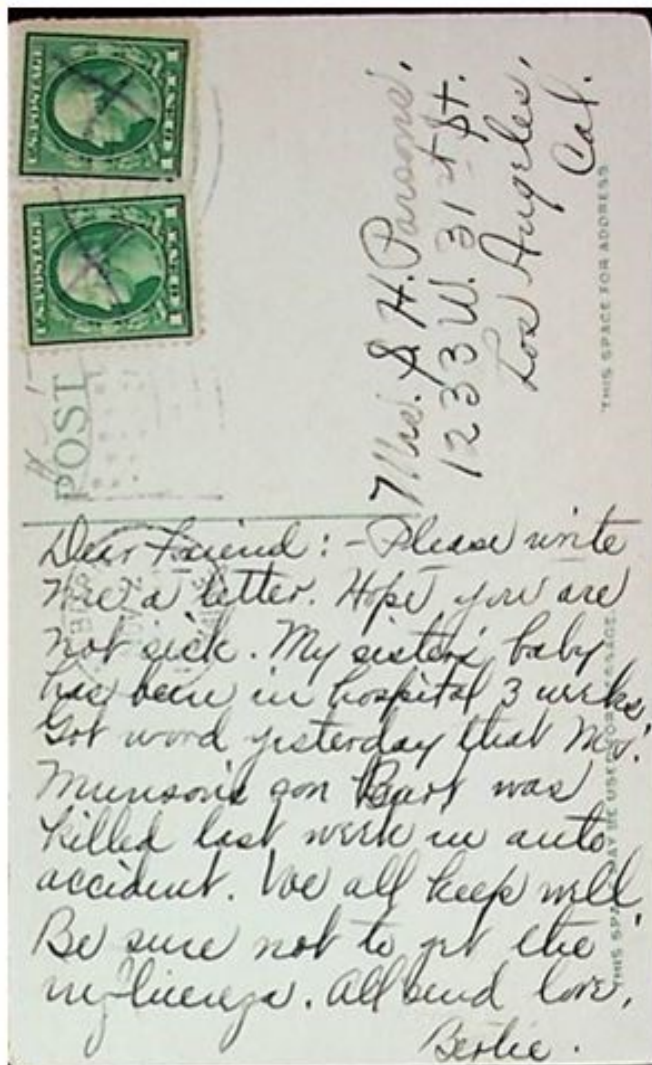 U.S. POSTAGE
1 CENT 1
U.S. POSTAGE
1 CENT 1
POST
Mrs. S. H. Parsons,
1233 W. 31st St.
Los Angeles,
Cal.
THIS SPACE FOR ADDRESS
Dear Friend: - Please write
me a letter. Hope you are
not sick. My sister's baby
has been in hospital 3 weeks.
Got word yesterday that Mrs.
Munson's son Bart was
killed last week in auto
accident. We all keep well.
Be sure not to get the
influenza. All send love.
Bertie.
THIS SPACE MAY BE USED FOR MESSAGE